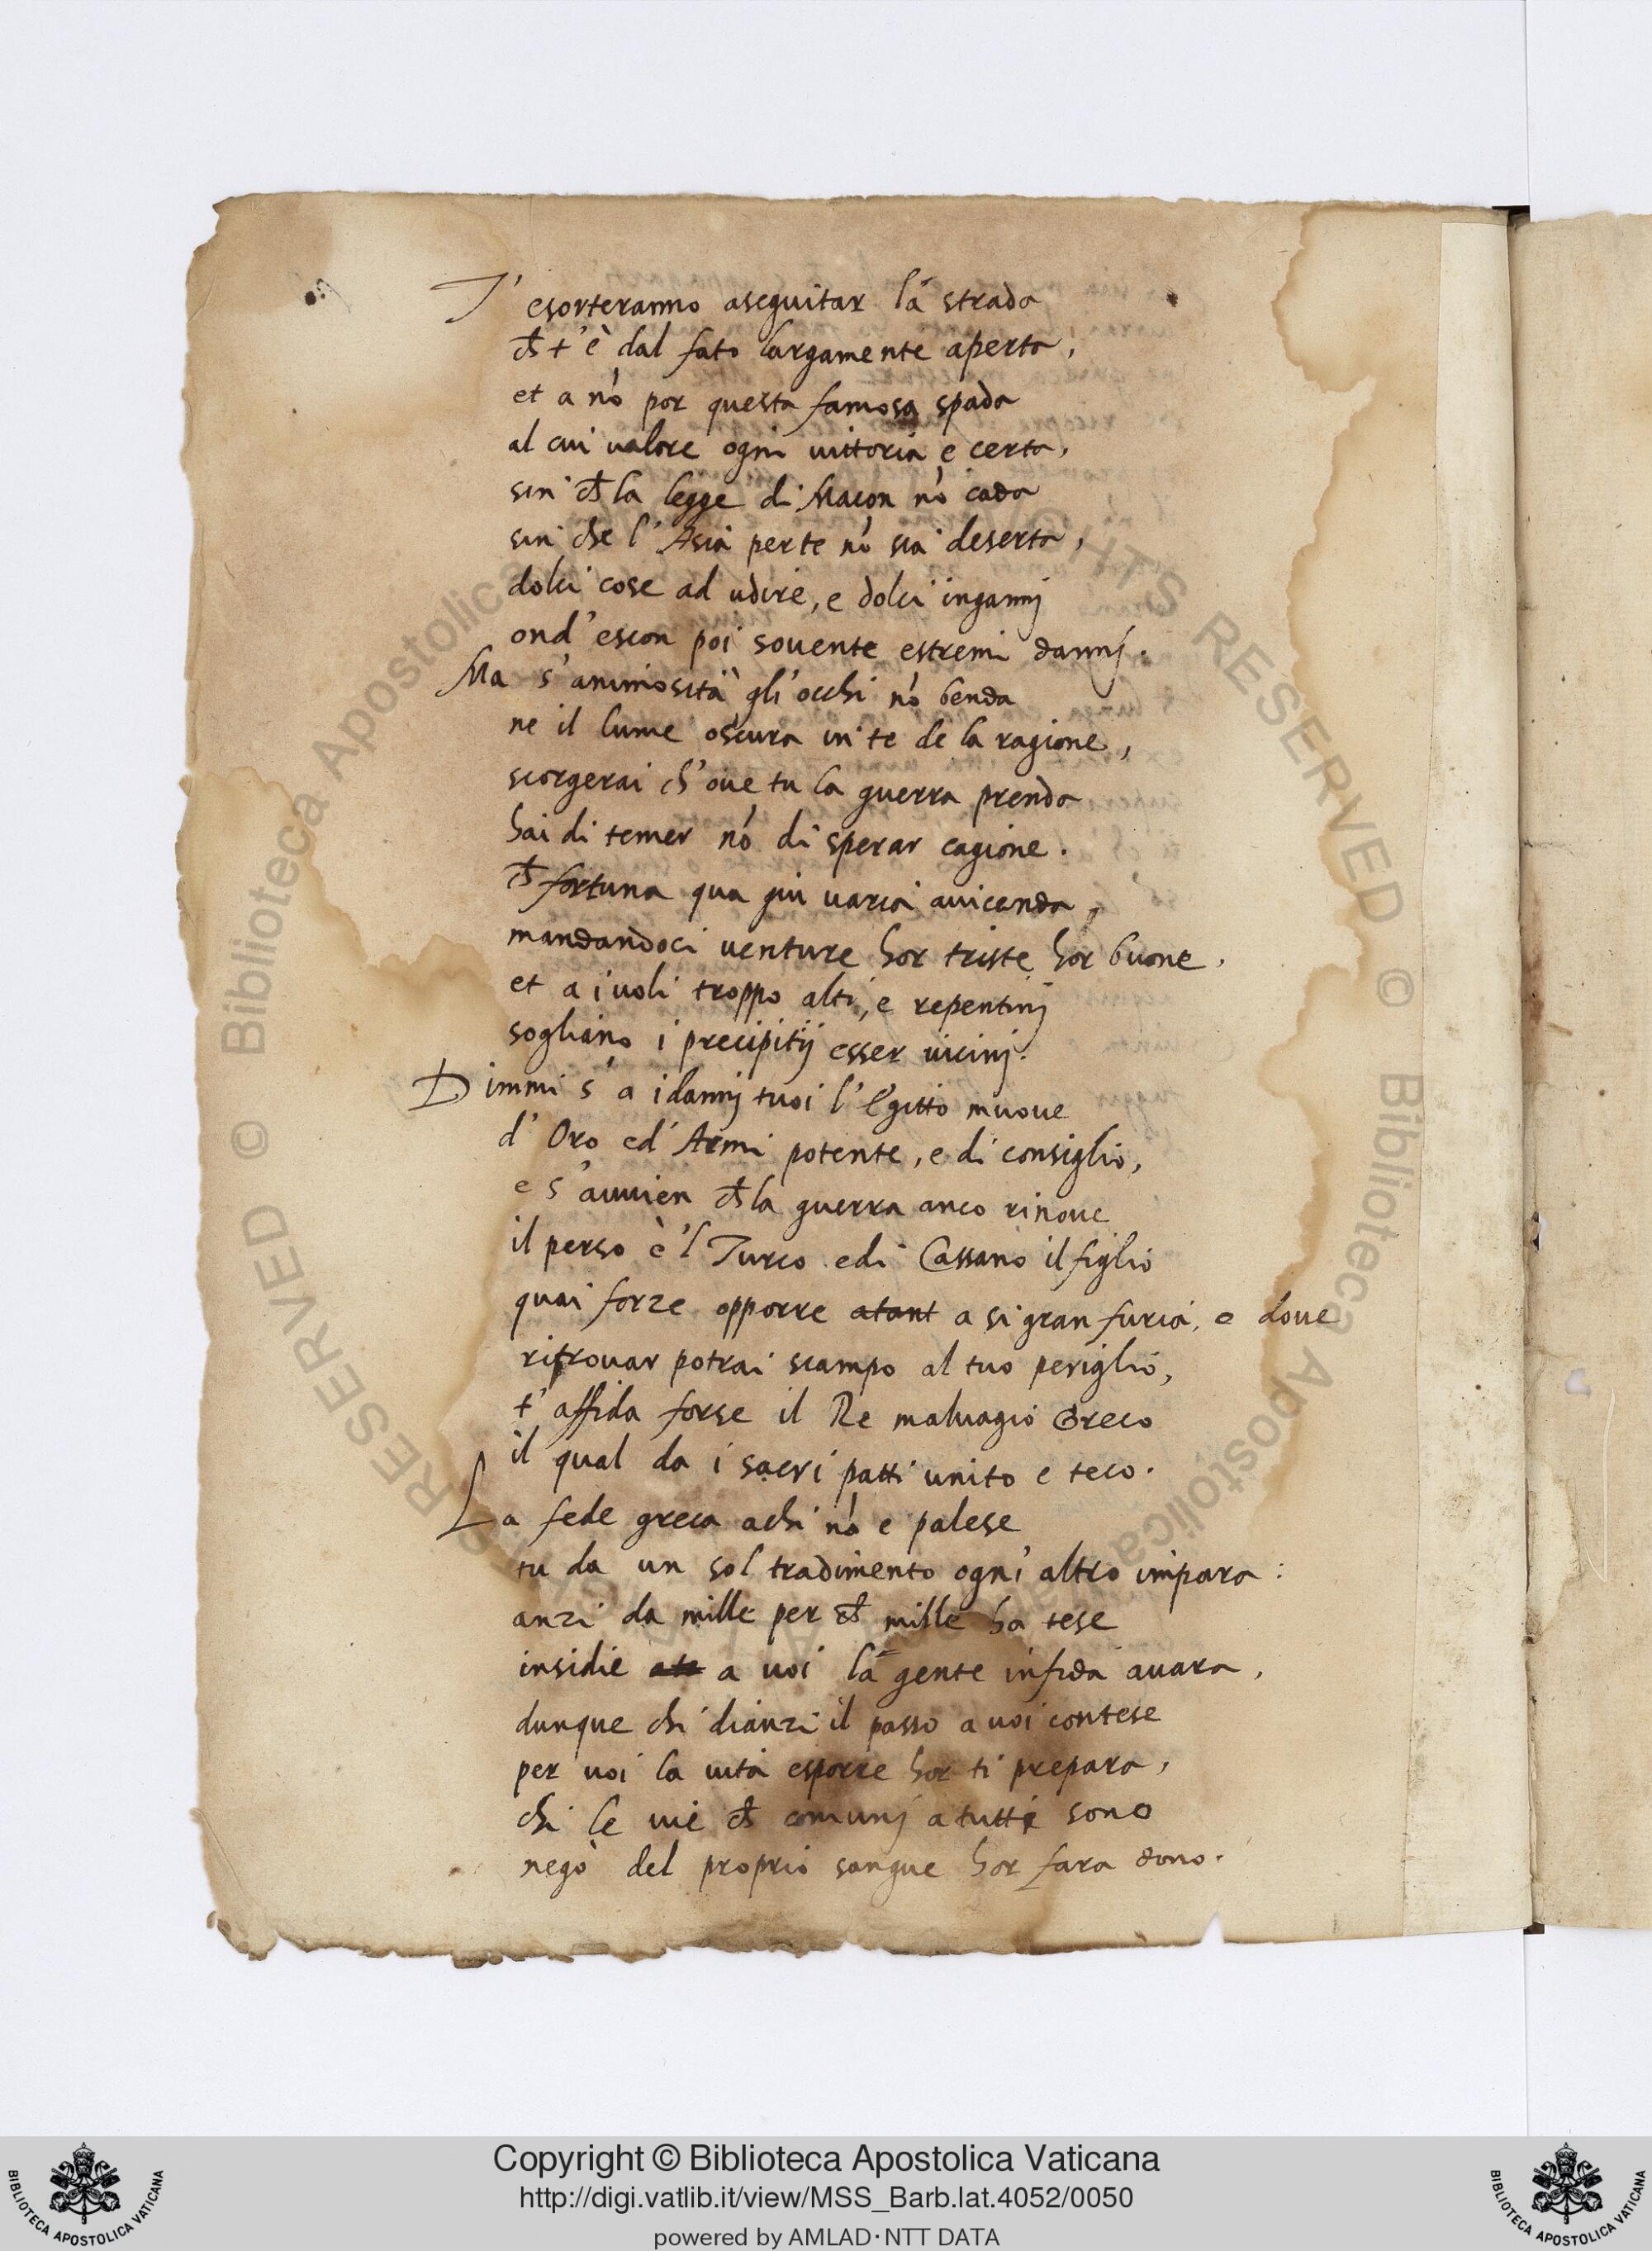 T' esorteranno aseguitar la strada
ch̄ t'è dal fato largamente aperta,
et a nō por questa famosa spada
al cui valore ogni vittoria è certa,
sin ch̄ la legge di Macon nō cada
sin che l'Asia perte nō sia deserta,
dolci cose ad udire, e dolci ingannj
ond'escon poi souente estremi dannj.
Ma s'animosità gli occhi nō benda
ne il lume oscura in te de la ragione,
scorgerai ch'oue tu la guerra prenda
hai di temer nō di sperar cagione.
ch̄ fortuna qua giu varia auicenda,
mandandoci uenture hor triste hor buone,
et a i uoli troppo alti, e repentinj
sogliano i precipitij esser vicinj.
Dimmi s'a i dannj tuoi l'Egitto muoue
d'Oro ed'Armi potente, e di consiglio,
e s'auuien ch̄ la guerra anco rinoue
il perso e'l Turco edi Cassano il figlio
quai forze opporre atant a si gran furia, e doue
ritrouar potrai scampo al tuo periglio,
t'affida forse il Re maluagio Greco
il qual da i sacri patti unito e teco.
La fede greca achi nō e palese
tu da un sol tradimento ogni altro impara:
anzi da mille per ch̄ mille ha tese
insidie ate a uoi la gente infida auara,
dunque chi dianzi il passo a uoi contese
per uoi la uita esporre hor ti prepara,
chi le uie ch̄ comunj a tutti sono
negò del proprio sangue hor fara dono.
© Biblioteca Apostolica
RIGHTS RESERVED © Biblioteca Apostolica
RESERVED © Biblioteca Apostolica
Copyright © Biblioteca Apostolica Vaticana
http://digi.vatlib.it/view/MSS_Barb.lat.4052/0050
powered by AMLAD·NTT DATA
BIBLIOTECA APOSTOLICA VATICANA
BIBLIOTECA APOSTOLICA VATICANA